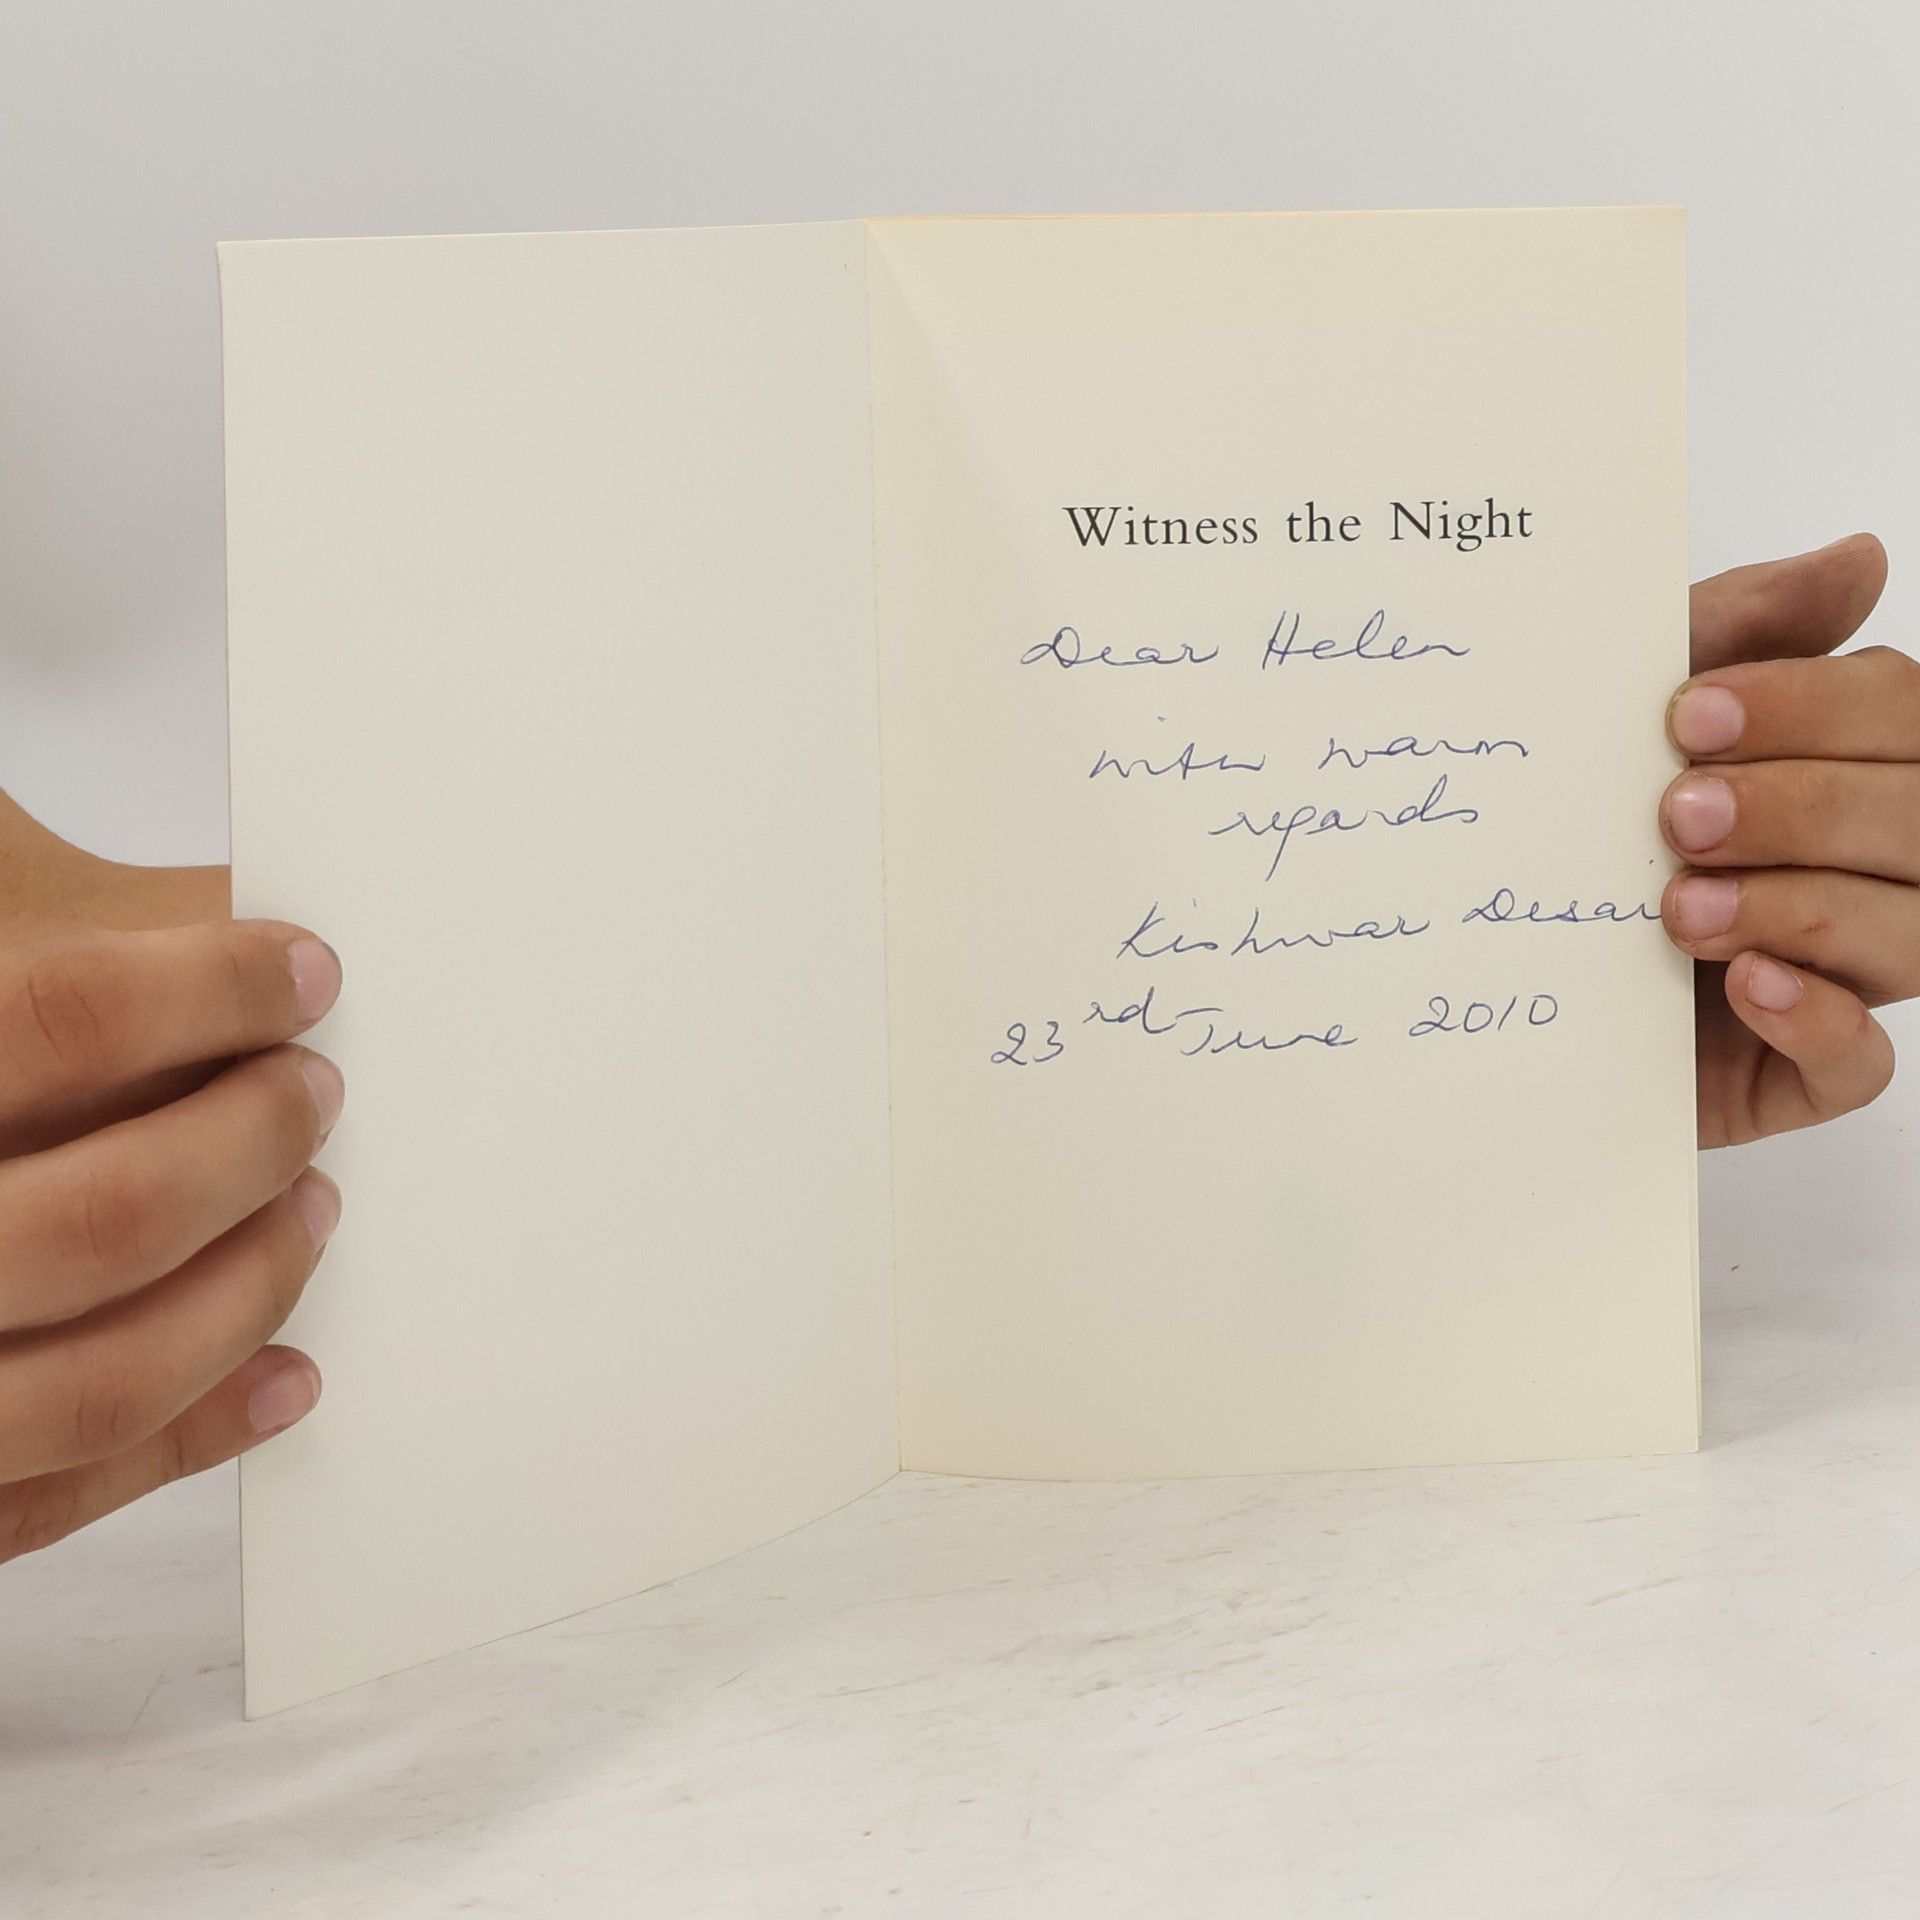 Witness the Night
Dear Helen
with warm
regards
Kishwar Desai
23rd June 2010